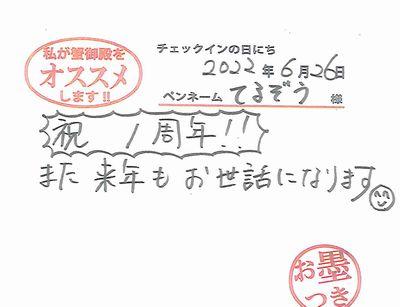 私が蟹御殿を
オススメ
します!!
チェックインの日にち
2022年6月26日
ペンネーム てるぞう 様
祝 1周年!!
また来年もお世話になります
お墨
つき